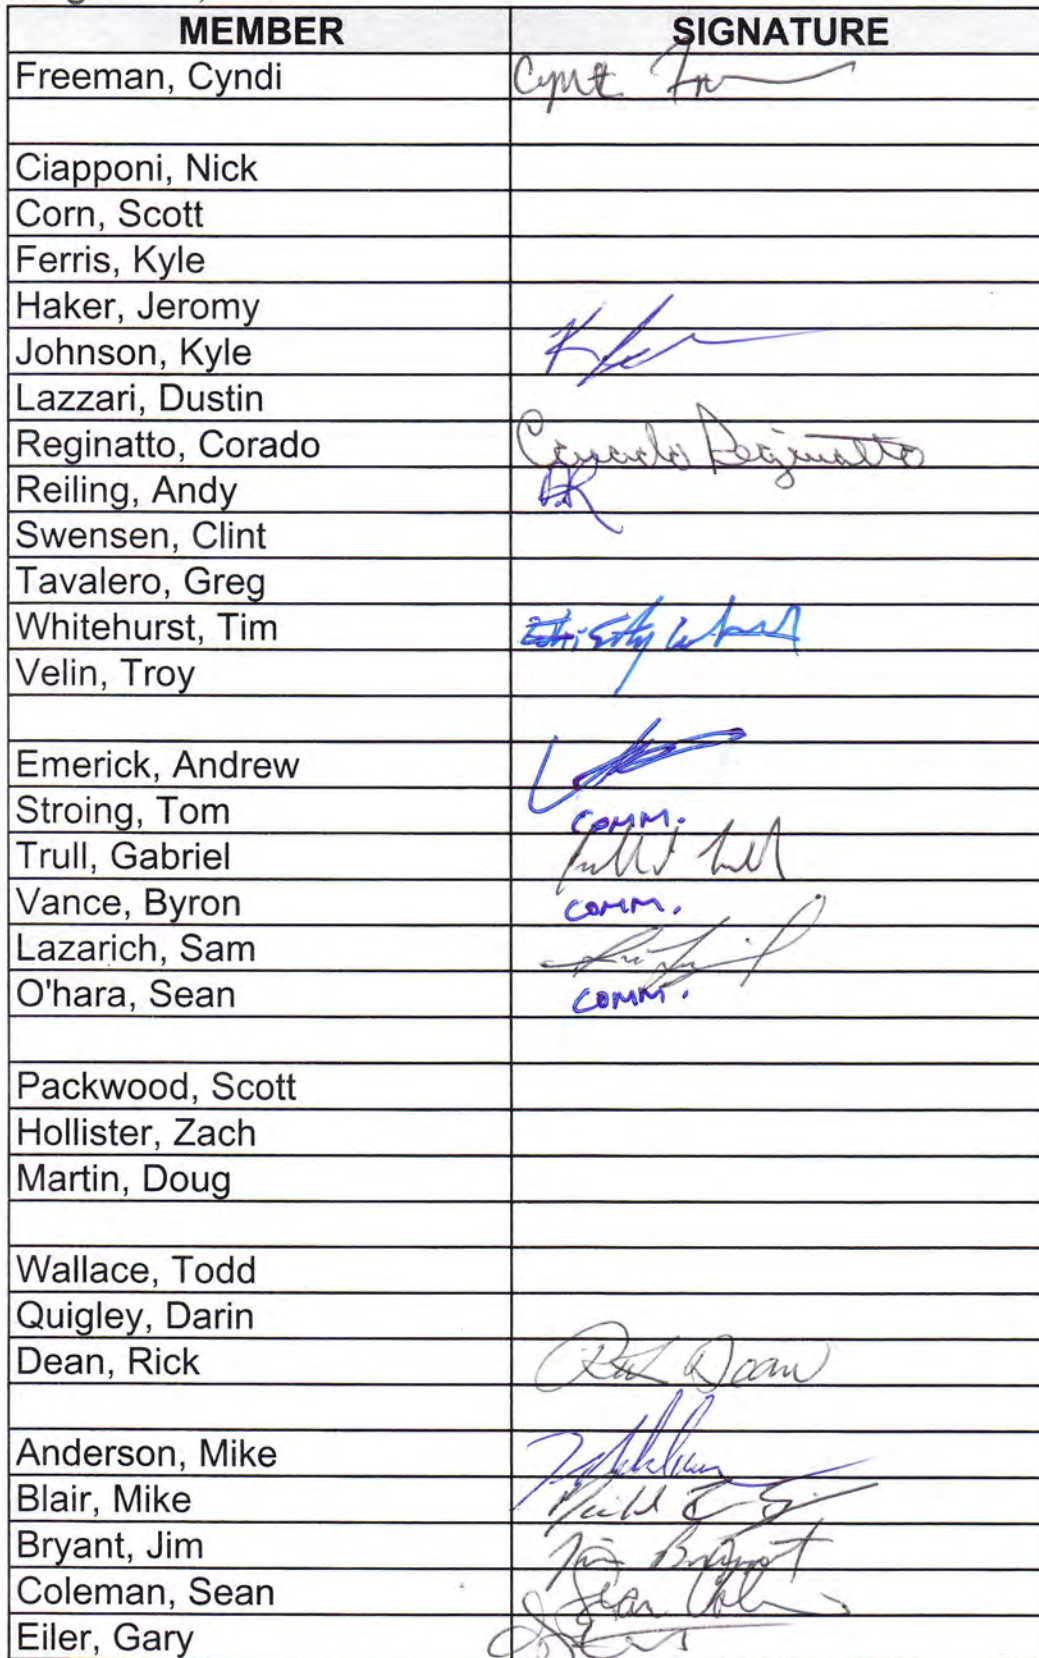 MEMBER SIGNATURE
Freeman, Cyndi
Ciapponi, Nick
Corn, Scott
Ferris, Kyle
Haker, Jeromy
Johnson, Kyle
Lazzari, Dustin
Reginatto, Corado Corrado Reginatto
Reiling, Andy AR
Swensen, Clint
Tavalero, Greg
Whitehurst, Tim
Velin, Troy
Emerick, Andrew
Stroing, Tom COMM.
Trull, Gabriel
Vance, Byron COMM.
Lazarich, Sam
O'hara, Sean COMM.
Packwood, Scott
Hollister, Zach
Martin, Doug
Wallace, Todd
Quigley, Darin
Dean, Rick Rick Dean
Anderson, Mike
Blair, Mike
Bryant, Jim Jim Bryant
Coleman, Sean Sean
Eiler, Gary